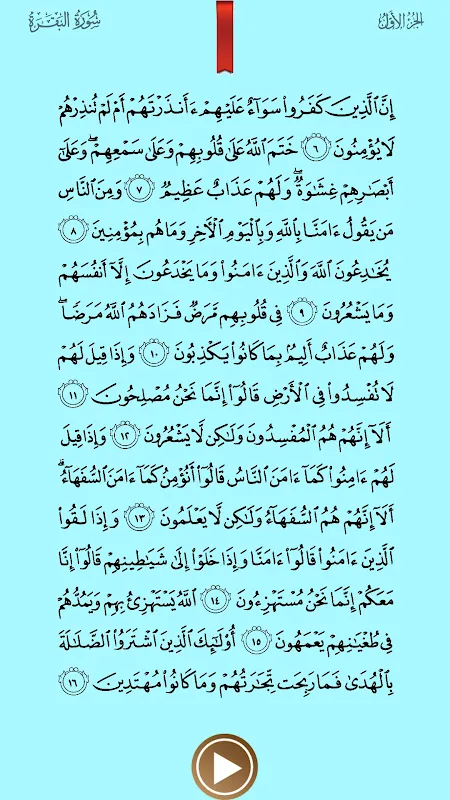 الجزء الأول
سورة البقرة
إِنَّ ٱلَّذِينَ كَفَرُوا۟ سَوَآءٌ عَلَيْهِمْ ءَأَنذَرْتَهُمْ أَمْ لَمْ تُنذِرْهُمْ
لَا يُؤْمِنُونَ ٦ خَتَمَ ٱللَّهُ عَلَىٰ قُلُوبِهِمْ وَعَلَىٰ سَمْعِهِمْ ۖ وَعَلَىٰٓ
أَبْصَٰرِهِمْ غِشَٰوَةٌ ۖ وَلَهُمْ عَذَابٌ عَظِيمٌ ٧ وَمِنَ ٱلنَّاسِ
مَن يَقُولُ ءَامَنَّا بِٱللَّهِ وَبِٱلْيَوْمِ ٱلْءَاخِرِ وَمَا هُم بِمُؤْمِنِينَ ٨
يُخَٰدِعُونَ ٱللَّهَ وَٱلَّذِينَ ءَامَنُوا۟ وَمَا يَخْدَعُونَ إِلَّآ أَنفُسَهُمْ
وَمَا يَشْعُرُونَ ٩ فِى قُلُوبِهِم مَّرَضٌ فَزَادَهُمُ ٱللَّهُ مَرَضًا ۖ
وَلَهُمْ عَذَابٌ أَلِيمٌۢ بِمَا كَانُوا۟ يَكْذِبُونَ ١٠ وَإِذَا قِيلَ لَهُمْ
لَا تُفْسِدُوا۟ فِى ٱلْأَرْضِ قَالُوٓا۟ إِنَّمَا نَحْنُ مُصْلِحُونَ ١١
أَلَآ إِنَّهُمْ هُمُ ٱلْمُفْسِدُونَ وَلَٰكِن لَّا يَشْعُرُونَ ١٢ وَإِذَا قِيلَ
لَهُمْ ءَامِنُوا۟ كَمَآ ءَامَنَ ٱلنَّاسُ قَالُوٓا۟ أَنُؤْمِنُ كَمَآ ءَامَنَ ٱلسُّفَهَآءُ ۗ
أَلَآ إِنَّهُمْ هُمُ ٱلسُّفَهَآءُ وَلَٰكِن لَّا يَعْلَمُونَ ١٣ وَإِذَا لَقُوا۟
ٱلَّذِينَ ءَامَنُوا۟ قَالُوٓا۟ ءَامَنَّا وَإِذَا خَلَوْا۟ إِلَىٰ شَيَٰطِينِهِمْ قَالُوٓا۟ إِنَّا
مَعَكُمْ إِنَّمَا نَحْنُ مُسْتَهْزِءُونَ ١٤ ٱللَّهُ يَسْتَهْزِئُ بِهِمْ وَيَمُدُّهُمْ
فِى طُغْيَٰنِهِمْ يَعْمَهُونَ ١٥ أُو۟لَٰٓئِكَ ٱلَّذِينَ ٱشْتَرَوُا۟ ٱلضَّلَٰلَةَ
بِٱلْهُدَىٰ فَمَا رَبِحَت تِّجَٰرَتُهُمْ وَمَا كَانُوا۟ مُهْتَدِينَ ١٦